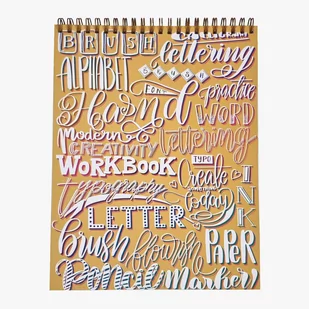 BRUSH
lettering
ALPHABET
BRUSH
FONT
practice
Hand
WORD
Modern
lettering
CREATIVITY
WORKBOOK
TYPO
Create
SOMETHING
today
typography
INK
LETTER
brush
flourish
PAPER
Pencil
Marker